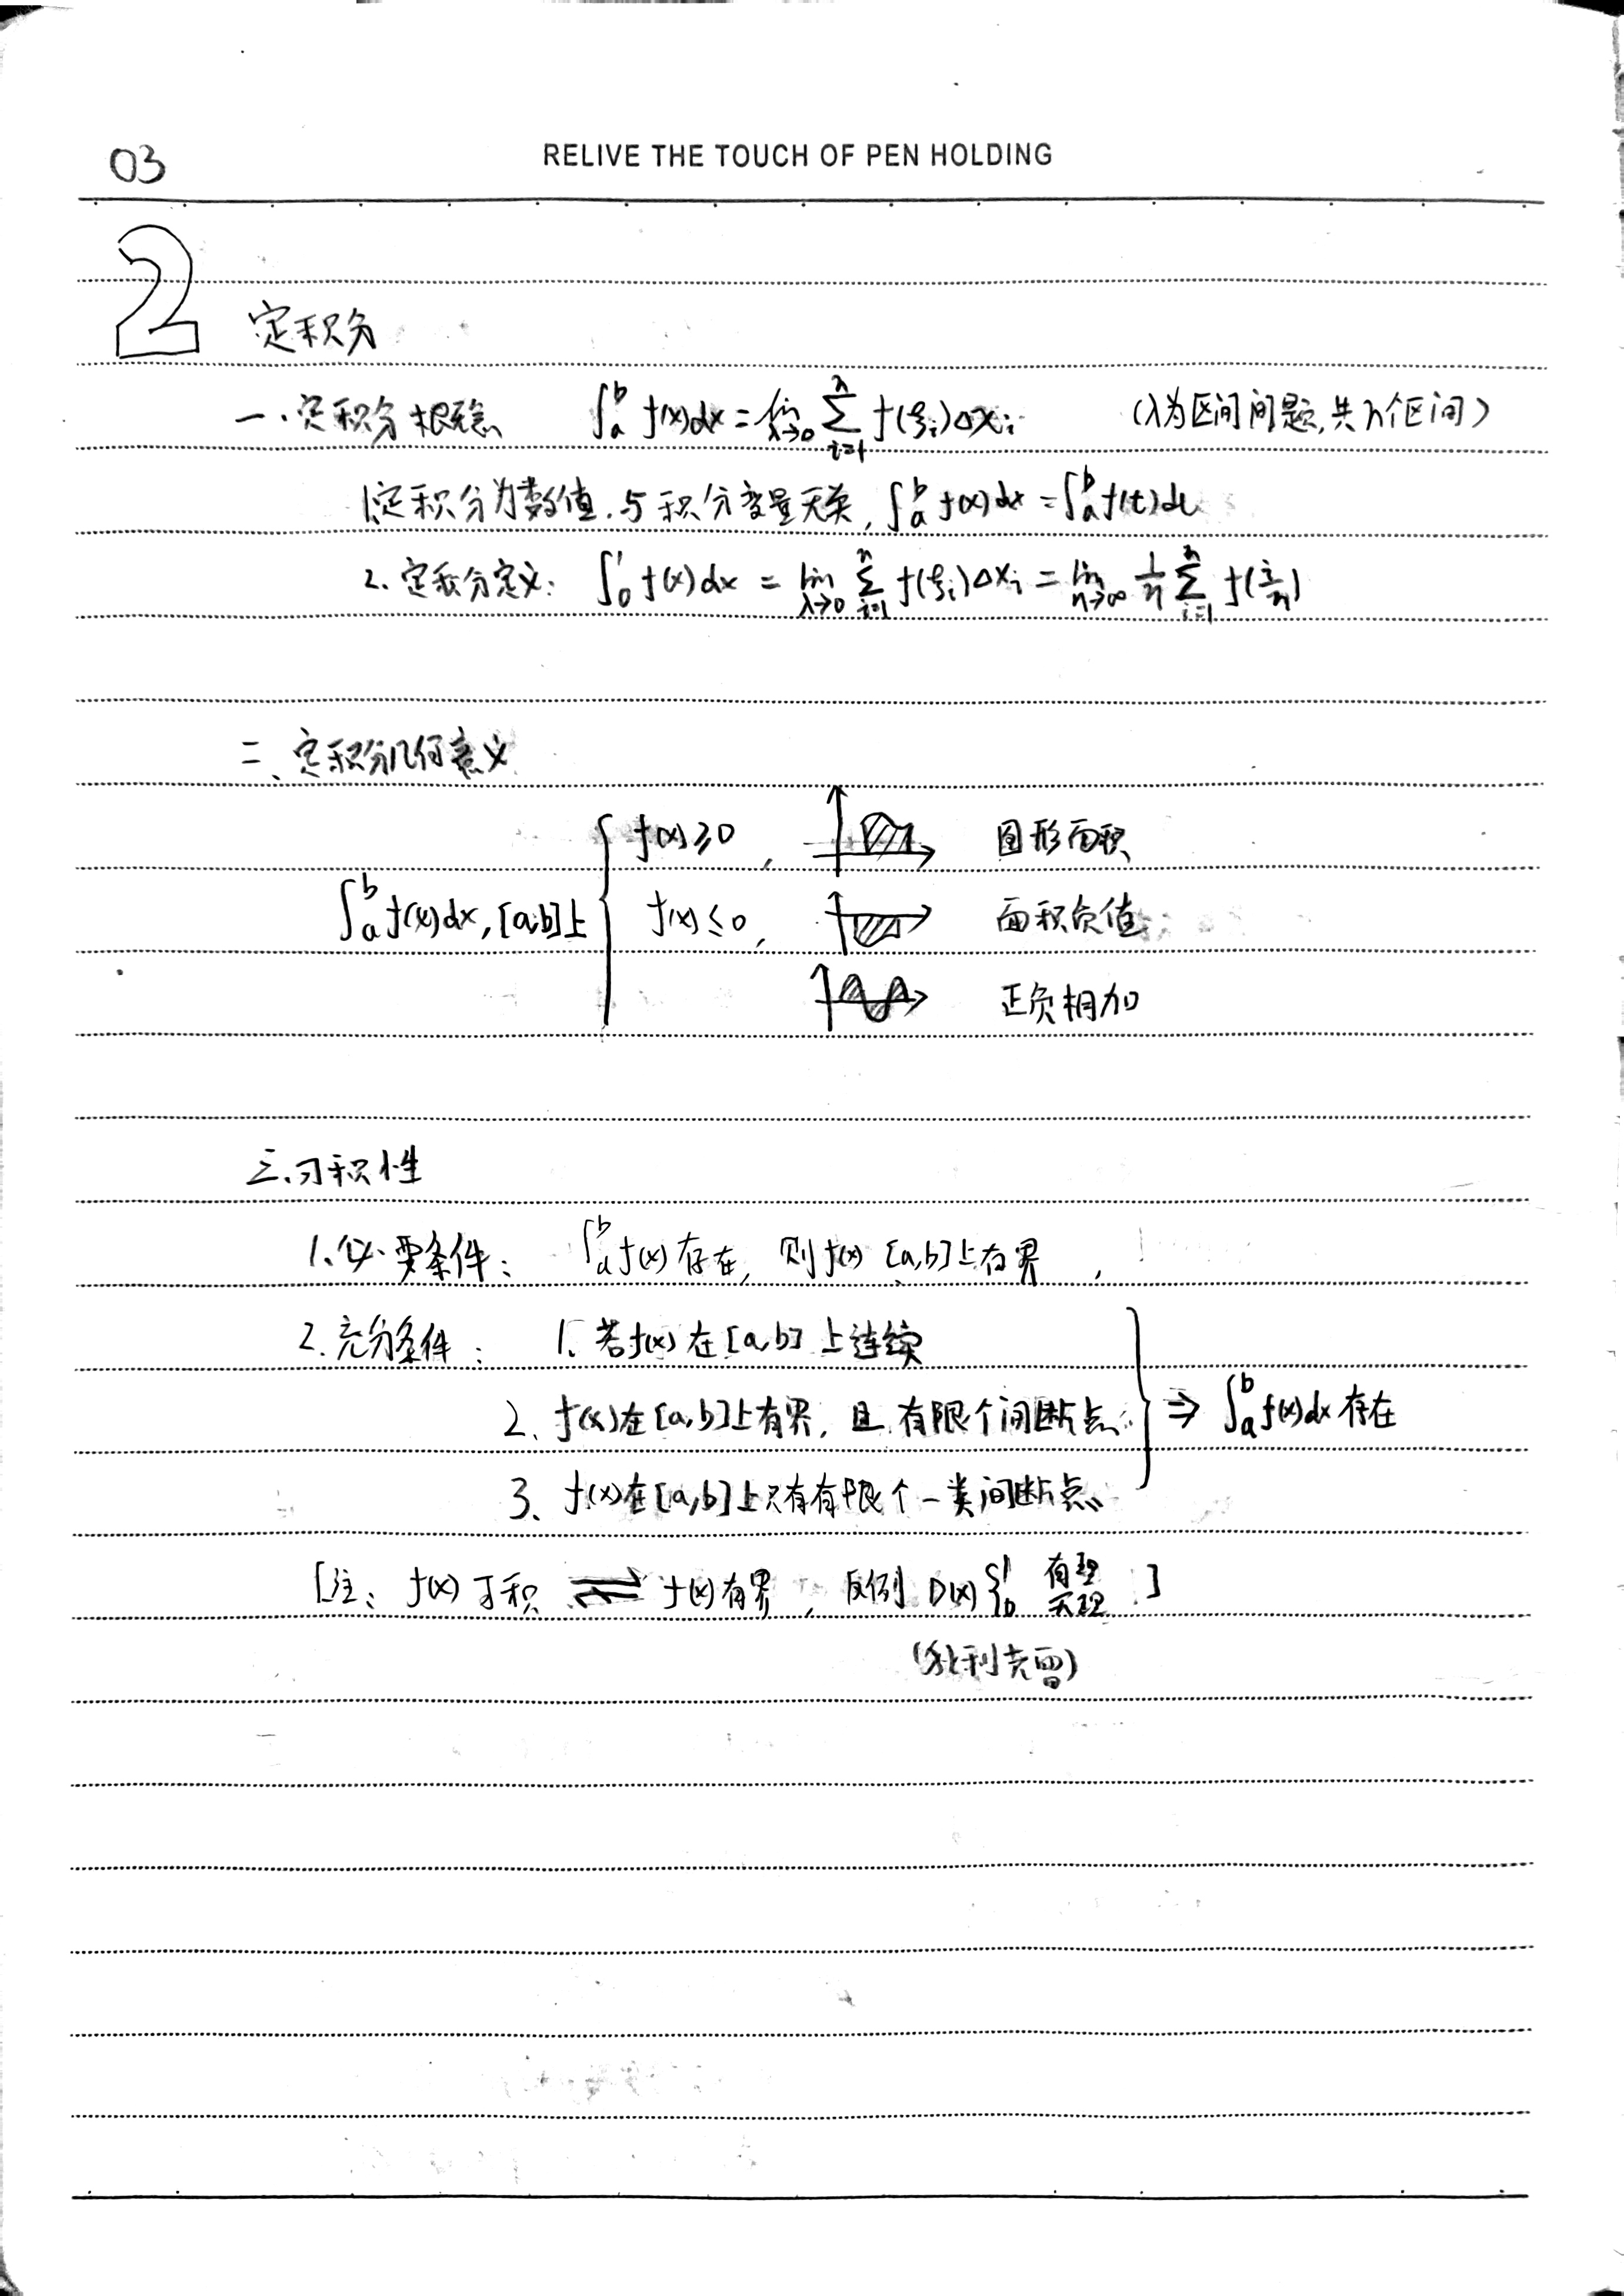 03
RELIVE THE TOUCH OF PEN HOLDING
2 定积分
一.定积分概念 ∫_a^b f(x)dx = lim_{λ→0} ∑_{i=1}^n f(ξ_i)Δx_i (λ为区间问题,共n个区间)
1.定积分为数值.与积分变量无关,∫_a^b f(x)dx = ∫_a^b f(t)dt
2.定积分定义: ∫_0^1 f(x)dx = lim_{λ→0} ∑_{i=1}^n f(ξ_i)Δx_i = lim_{n→∞} 1/n ∑_{i=1}^n f(i/n)
二、定积分几何意义
f(x)≥0, 图形面积
∫_a^b f(x)dx,[a,b]上 { f(x)≤0, 面积负值
正负相加
三.可积性
1.必要条件: ∫_a^b f(x)存在,则f(x) [a,b]上有界
2.充分条件: 1.若f(x)在[a,b]上连续
2、f(x)在[a,b]上有界,且有限个间断点 } ⇒ ∫_a^b f(x)dx存在
3、f(x)在[a,b]上只有有限个一类间断点
[注: f(x)可积 ⇌ f(x)有界, 反例 D(x){1 有理 0 无理]
(狄利克雷)